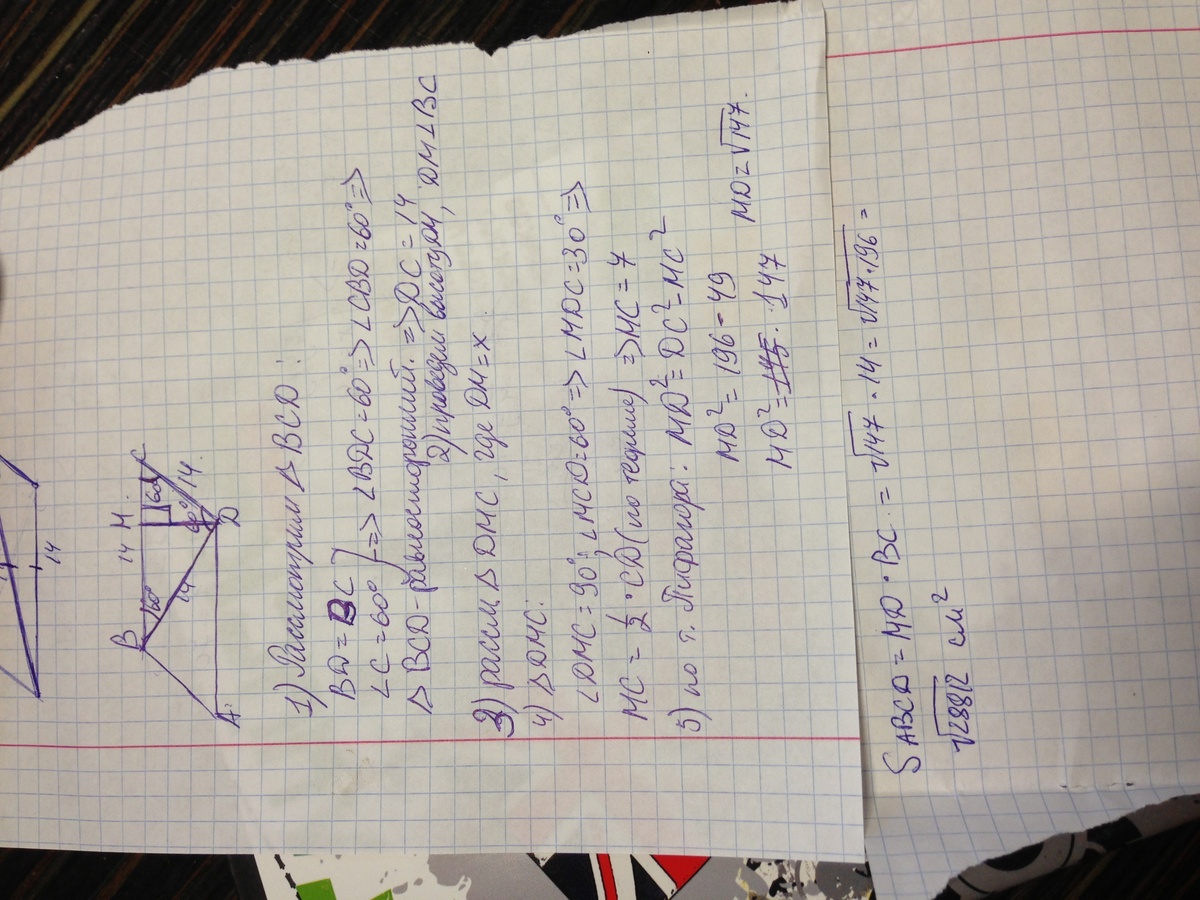 14
B 14 M C
60° 60°
14 60° 14.
A D
1) Рассмотрим Δ BCD:
BD = BC
∠C = 60° } => ∠BDC = 60° => ∠CBD = 60° =>
Δ BCD - равносторонний. => DC = 14
2) проведем высоту DM, DM ⊥ BC
3) рассм Δ DMC, где DM = x.
4) Δ DMC:
∠DMC = 90°, ∠MCD = 60° => ∠MDC = 30° =>
MC = 1/2 · CD (по теореме) => MC = 7
5) по т. Пифагора: MD² = DC² - MC²
MD² = 196 - 49
MD² = 145. 147 MD = √147.
S ABCD = MD · BC. = √147 · 14 = √147·196 =
√28812 см²